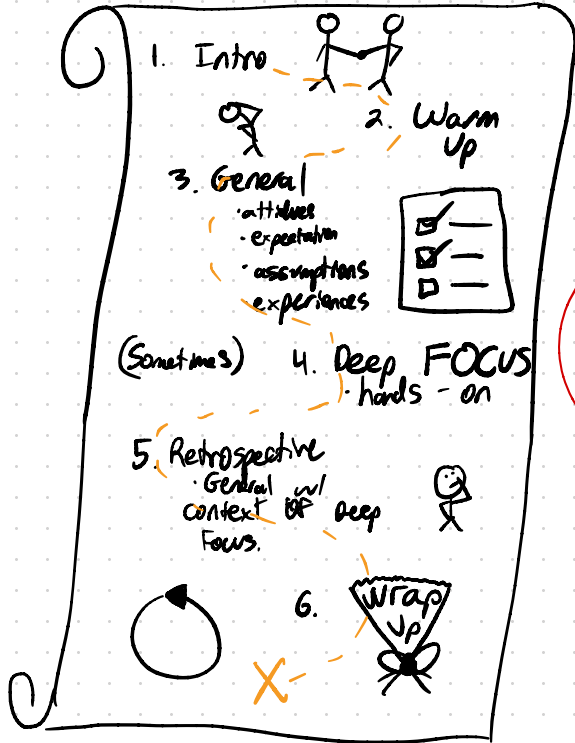 1. Intro
2. Warm
Up
3. General
• attitudes
• expectation
• assumptions
• experiences
(Sometimes) 4. Deep FOCUS
• hands - on
5. Retrospective
• General w/
context of Deep
Focus.
6. Wrap
Up
X